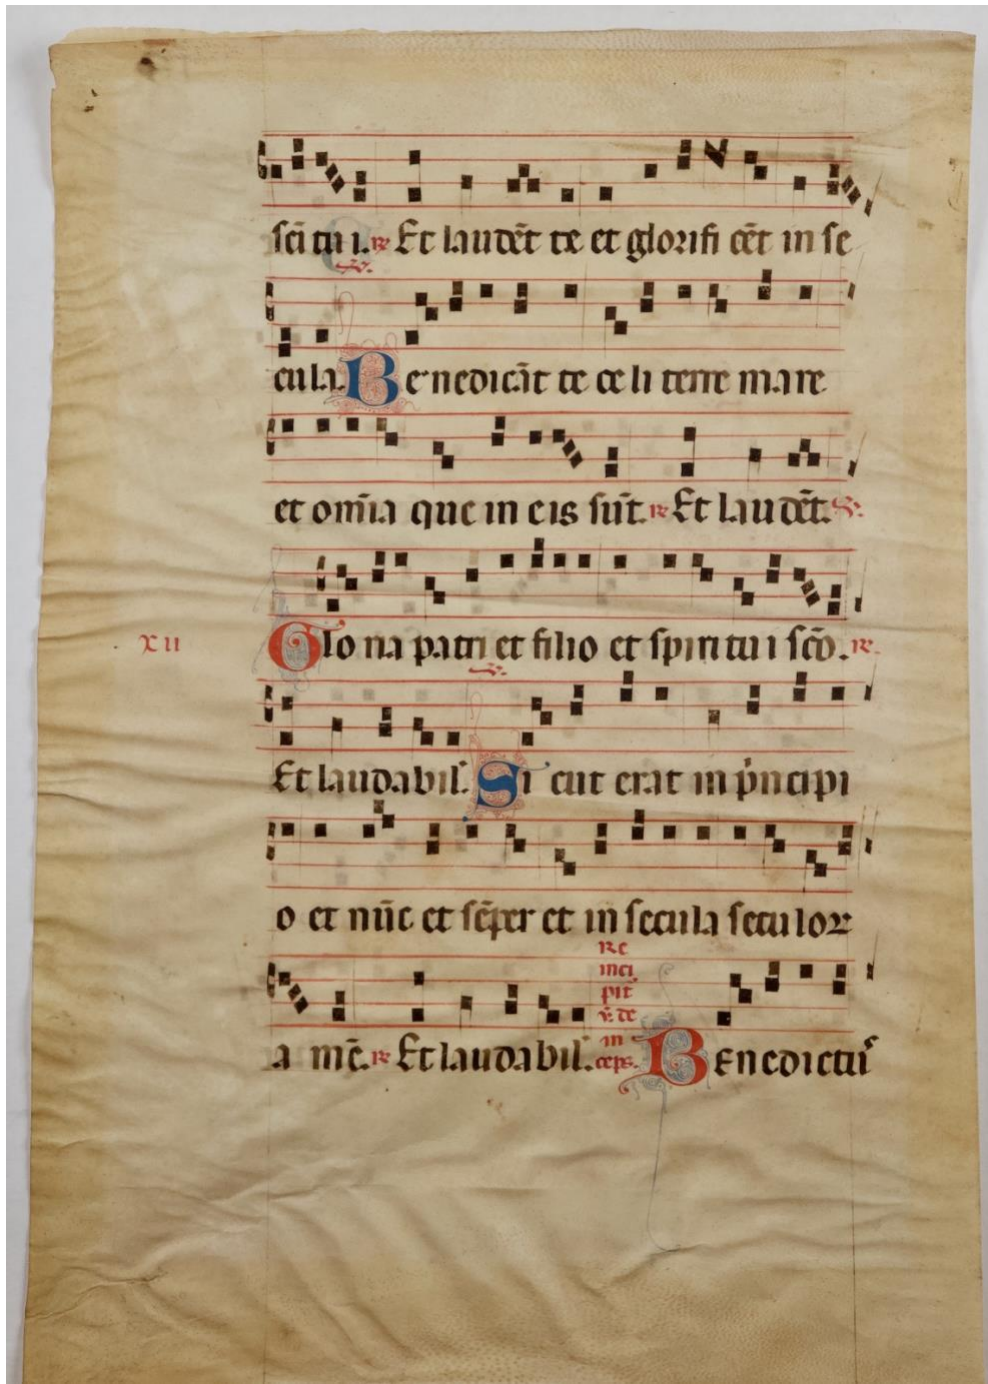 sc̄i tu i. ℟ Et laudēt te et glorifi cēt in se
℣.
cula. Be nedicāt te ce li terre mare
et om̄ia que in eis sūt. ℟ Et laudēt. ℣.
XII Glo ria patri et filio et spiritu i sc̄o. ℟.
℣.
Et laudabil'. Si cut erat in p̄ncipi
o et nūc et sēper et in secula seculoꝝ
Re
inci
pit
a mē. ℟ Et laudabil'. ℣. de in ceps. Benedictus